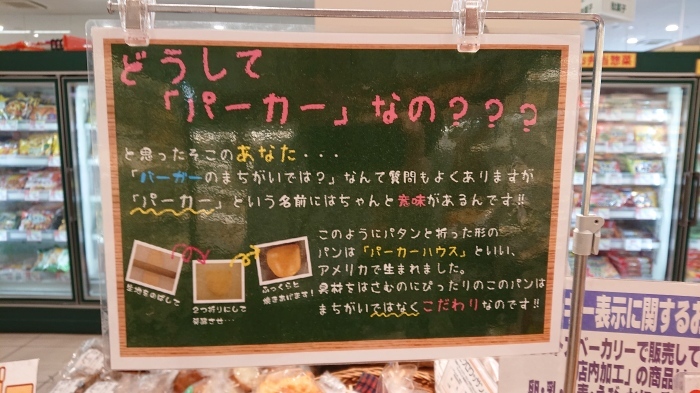 どうして
「パーカー」なの???
と思ったそこのあなた・・・
「バーガーのまちがいでは?」なんて質問もよくありますが
「パーカー」という名前にはちゃんと意味があるんです!!
このようにパタンと折った形の
パンは「パーカーハウス」といい、
アメリカで生まれました。
具材をはさむのにぴったりのこのパンは
まちがいではなくこだわりなのです!!
生地をのばして
2つ折りにして
発酵させ・・・
ふっくらと
焼きあげます!
表示に関する
ベーカリーで販売して
店内加工」の商品
卵・乳